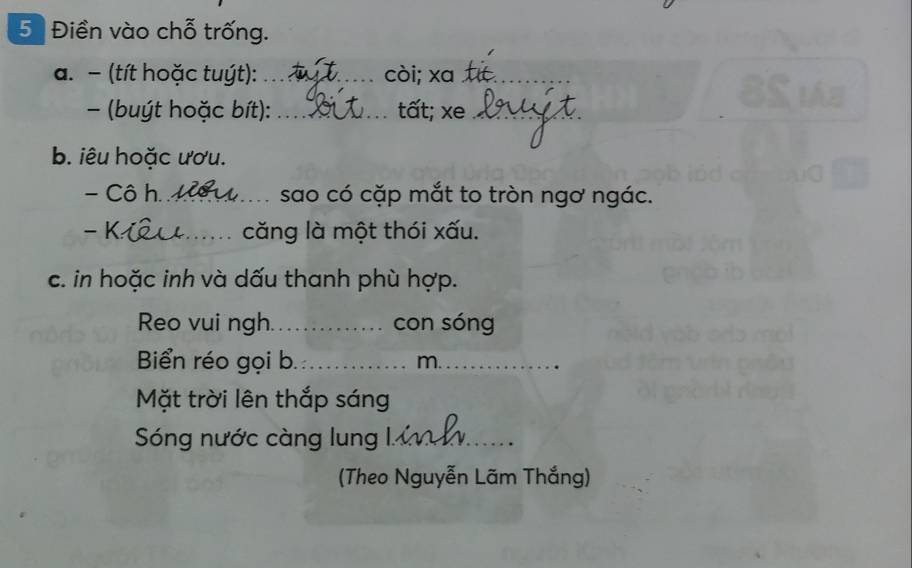 5 Điền vào chỗ trống.
a. – (tít hoặc tuýt): ...tuýt..... còi; xa tít..........
– (buýt hoặc bít): ....bít... tất; xe ..buýt..
b. iêu hoặc ươu.
– Cô h..ươu.... sao có cặp mắt to tròn ngơ ngác.
– Kiêu...... căng là một thói xấu.
c. in hoặc inh và dấu thanh phù hợp.
Reo vui ngh.............. con sóng
Biển réo gọi b.............. m...............
Mặt trời lên thắp sáng
Sóng nước càng lung l.inh......
(Theo Nguyễn Lãm Thắng)